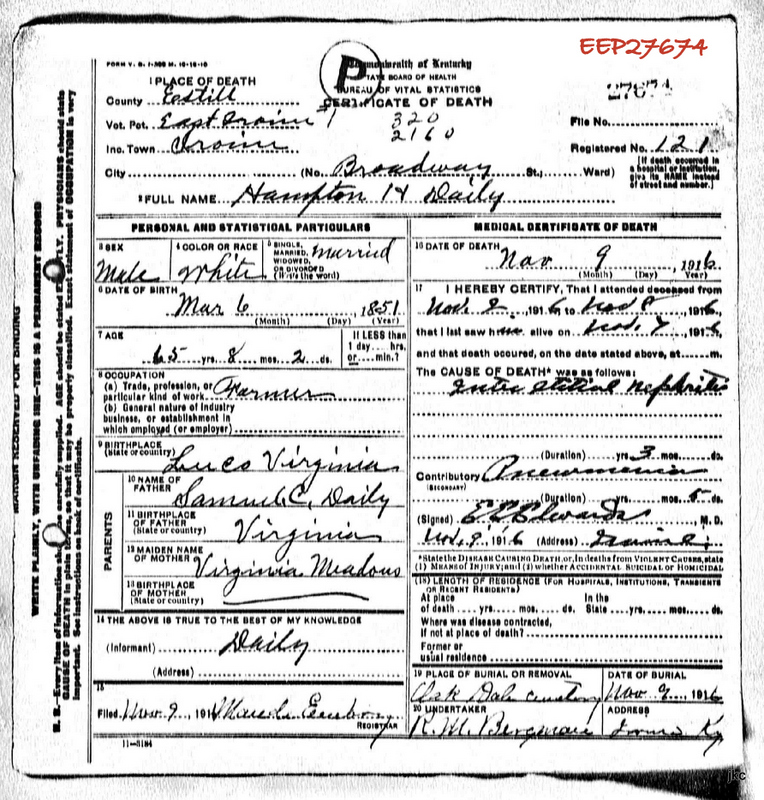 EEP27674
FORM V. S. 1-300 M. 10-10-10
Commonwealth of Kentucky
STATE BOARD OF HEALTH
BUREAU OF VITAL STATISTICS
CERTIFICATE OF DEATH
P
27674
1 PLACE OF DEATH
County Estill
Vot. Pct. East Irvine #1
320
2160
Inc. Town Irvine
City (No. Broadway St., Ward)
File No.
Registered No. 121
[If death occurred in
a hospital or institution,
give its NAME instead
of street and number.]
2 FULL NAME Hampton H Daily
PERSONAL AND STATISTICAL PARTICULARS
3 SEX
Male
4 COLOR OR RACE
White
5 SINGLE,
MARRIED,
WIDOWED,
OR DIVORCED
(Write the word)
Married
6 DATE OF BIRTH
Mar 6 1851
(Month) (Day) (Year)
7 AGE
65 yrs. 8 mos. 2 ds.
If LESS than
1 day hrs.
or min.?
8 OCCUPATION
(a) Trade, profession, or
particular kind of work Farmer
(b) General nature of industry
business, or establishment in
which employed (or employer)
9 BIRTHPLACE
(State or country)
Virginia
PARENTS
10 NAME OF
FATHER
Samuel C. Daily
11 BIRTHPLACE
OF FATHER
(State or country)
Virginia
12 MAIDEN NAME
OF MOTHER
Virginia Meadows
13 BIRTHPLACE
OF MOTHER
(State or country)
14 THE ABOVE IS TRUE TO THE BEST OF MY KNOWLEDGE
(Informant) Daily
(Address)
15
Filed Nov 9, 1916
REGISTRAR
11-3184
MEDICAL CERTIFICATE OF DEATH
16 DATE OF DEATH
Nov 9, 1916
(Month) (Day) (Year)
17 I HEREBY CERTIFY, That I attended deceased from
Nov. 2, 1916 to Nov 8, 1916,
that I last saw him alive on Nov. 7, 1916,
and that death occured, on the date stated above, at m.
The CAUSE OF DEATH* was as follows:
Interstitial nephritis
(Duration) yrs 3 mos. ds.
Contributory Pneumonia
(SECONDARY)
(Duration) yrs. mos. 5 ds.
(Signed) E C Edwards, M. D.
Nov. 9, 1916 (Address) Irvine
*State the DISEASE CAUSING DEATH, or, in deaths from VIOLENT CAUSES, state
(1) MEANS OF INJURY; and (2) whether ACCIDENTAL SUICIDAL or HOMICIDAL
(18) LENGTH OF RESIDENCE (FOR HOSPITALS, INSTITUTIONS, TRANSIENTS
OR RECENT RESIDENTS)
At place of death yrs. mos. ds. In the State yrs. mos. ds.
Where was disease contracted,
If not at place of death?
Former or
usual residence
19 PLACE OF BURIAL OR REMOVAL
Oak Dale Cemetery
DATE OF BURIAL
Nov 9, 1916
20 UNDERTAKER
R. M. Bergman
ADDRESS
Irvine Ky
MARGIN RESERVED FOR BINDING
WRITE PLAINLY, WITH UNFADING INK—THIS IS A PERMANENT RECORD
N. B.—Every item of information should be carefully supplied. AGE should be stated EXACTLY. PHYSICIANS should state
CAUSE OF DEATH in plain terms, so that it may be properly classified. Exact statement of OCCUPATION is very
important. See instructions on back of certificate.
jkc